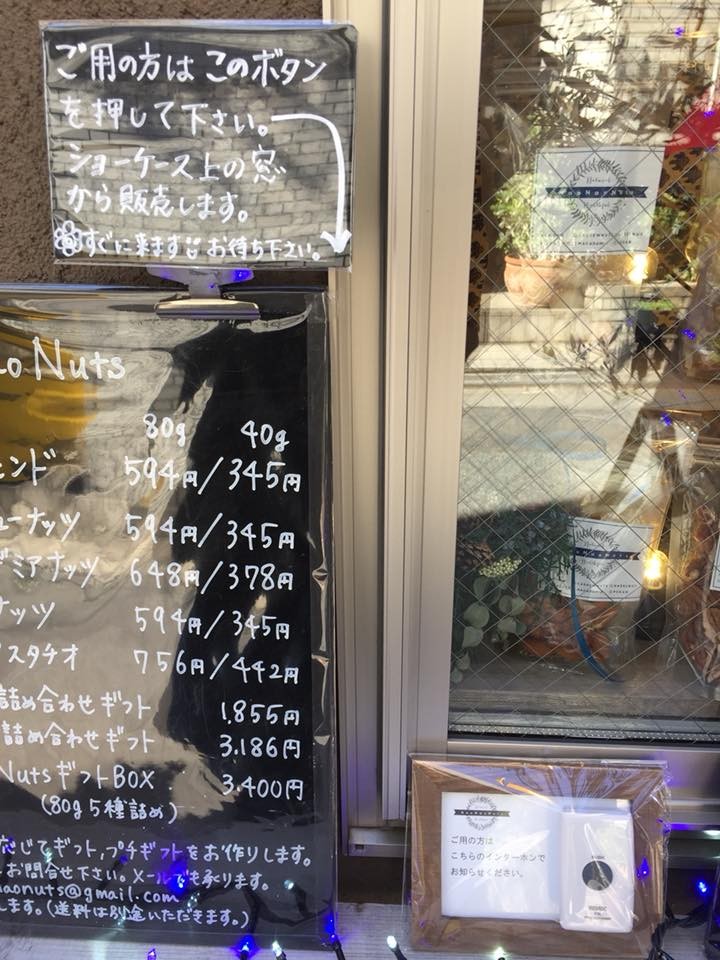 ご用の方は このボタン
を押して下さい。
ショーケース上の窓
から販売します。
すぐに来ます お待ち下さい。
o Nuts
80g 40g
ンド 594円/345円
ューナッツ 594円/345円
ミアナッツ 648円/378円
ナッツ 594円/345円
スタチオ 756円/442円
詰め合わせギフト 1.855円
詰め合わせギフト 3.186円
NutsギフトBOX 3.400円
(80g5種詰め)
じてギフト,プチギフトをお作りします。
お問合せ下さい。メールでも承ります。
naonuts@gmail.com
します。(送料は別途いただきます。)
Natural
NaoNaoNuts
Healthful
ご用の方は
こちらのインターホンで
お知らせください。